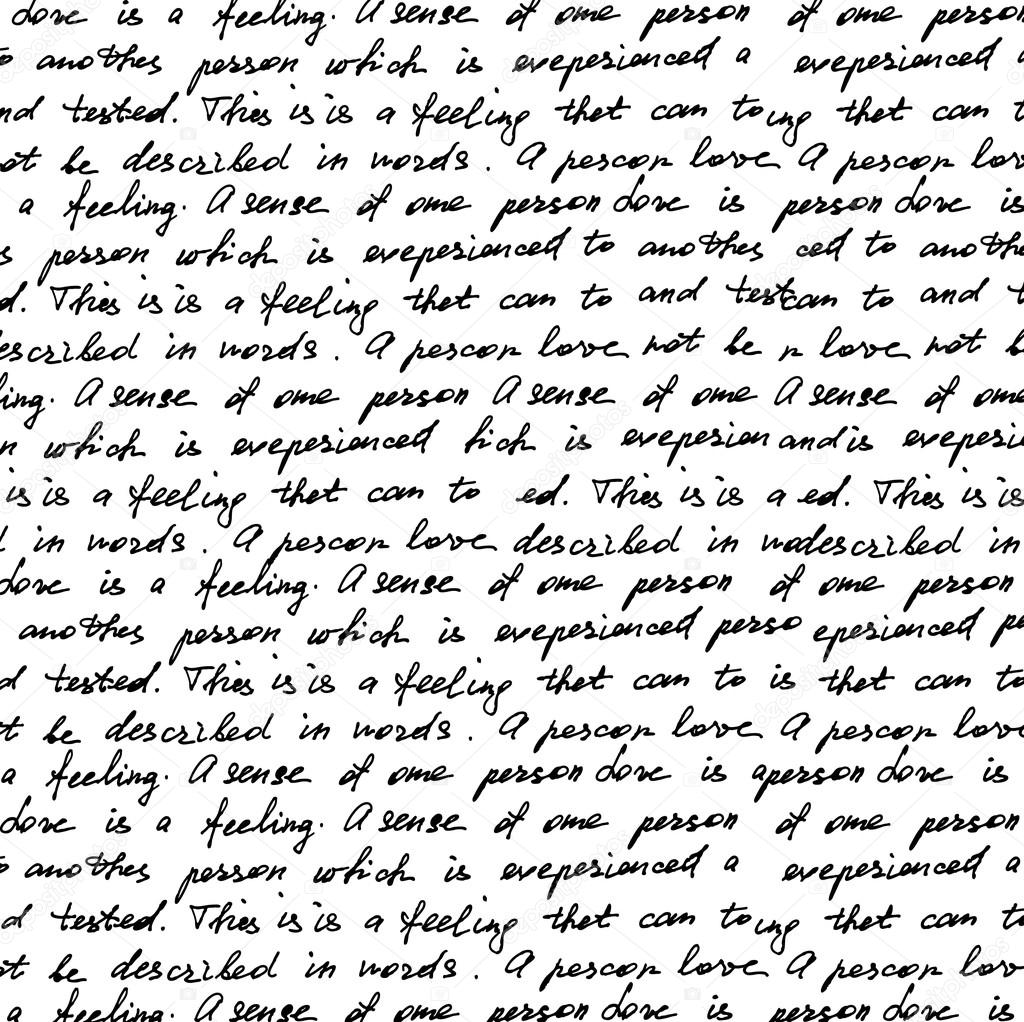 dove is a feeling. A sense of ome person of ome person
anothes person which is exepesienced a exepesienced
nd tested. This is is a feeling thet can to ing thet can t
ot be described in words. A pescor love A pescor lov
a feeling. A sense of ome person dove is person dove is
s person which is exepesienced to anothes ced to anothe
d. This is is a feeling thet can to and test can to and t
escribed in words. A pescor love not be r love not b
ling. A sense of ome person A sense of ome A sense of ome
n which is exepesienced hich is exepesien and is exepesie
is is a feeling thet can to ed. This is is a ed. This is is
d in words. A pescor love described in wo described in
dove is a feeling. A sense of ome person of ome person
anothes person which is exepesienced perso epesienced pe
d tested. This is is a feeling thet can to is thet can to
t be described in words. A pescor love A pescor love
a feeling. A sense of ome person dove is a person dove is
dove is a feeling. A sense of ome person of ome person
anothes person which is exepesienced a exepesienced a
d tested. This is is a feeling thet can to ing thet can to
ot be described in words. A pescor love A pescor lov
a feeling. A sense of ome person dove is person dove is